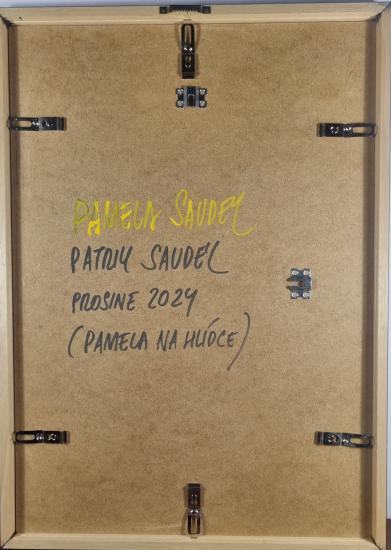 PAMELA SAUDEK
PATRIK SAUDEK
PROSINEC 2024
(PAMELA NA HLÍDCE)